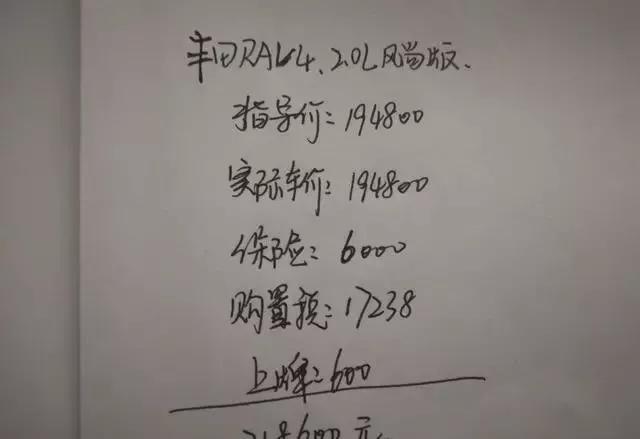 丰田RAV4、2.0L风尚版、
指导价：194800
实际车价：194800
保险：6000
购置税：17238
上牌：600
元